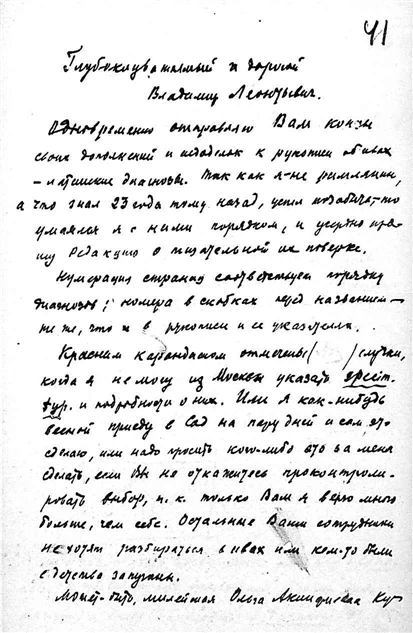 41
Глубокоуважаемый и дорогой
Владимир Леонтьевич.
Одновременно отправляю Вам концы
своих дополнений и переделок к рукописи об ивах
– латинские диагнозы. Так как я не римлянин,
а что знал 23 года тому назад, успел позабыть, то
умаялся я с ними порядком, и усердно про-
шу Редакцию о тщательной их поверке.
Нумерация страниц соответствует порядку
диагнозов; номера в скобках перед названием –
те же, что и в рукописи и ее указателях.
Красным карандашом отмечены ( ) случаи,
когда я не могу из Москвы указать
и подробности о них. Или я как-нибудь
весной приеду в Сад на пару дней и сам это
сделаю, или надо просить кого-либо это за меня
сделать, если Вы не откажитесь проконтроли-
ровать выбор, т. к. только Вам я верю много
больше, чем себе. Остальные Ваши сотрудники
не хотят разбираться в ивах или кем-то были
с детства запуганы.
Может-быть, милейшая Ольга Акиндиновна Ку-